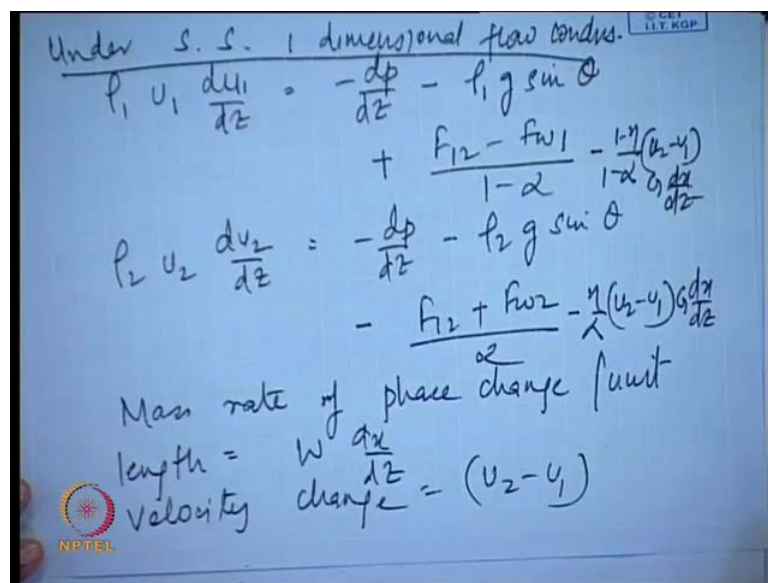 © CET
I.I.T. KGP
Under S. S. 1 dimensional flow condns.
ρ₁ u₁ du₁/dz = - dp/dz - ρ₁ g sin θ
+ (F₁₂ - Fw₁)/(1-α) - (1-η)/(1-α) (u₂-u₁) G dx/dz
ρ₂ u₂ du₂/dz = - dp/dz - ρ₂ g sin θ
- (F₁₂ + Fw₂)/α - η/α (u₂-u₁) G dx/dz
Mass rate of phase change / unit
length = W dx/dz
Velocity change = (u₂ - u₁)
NPTEL